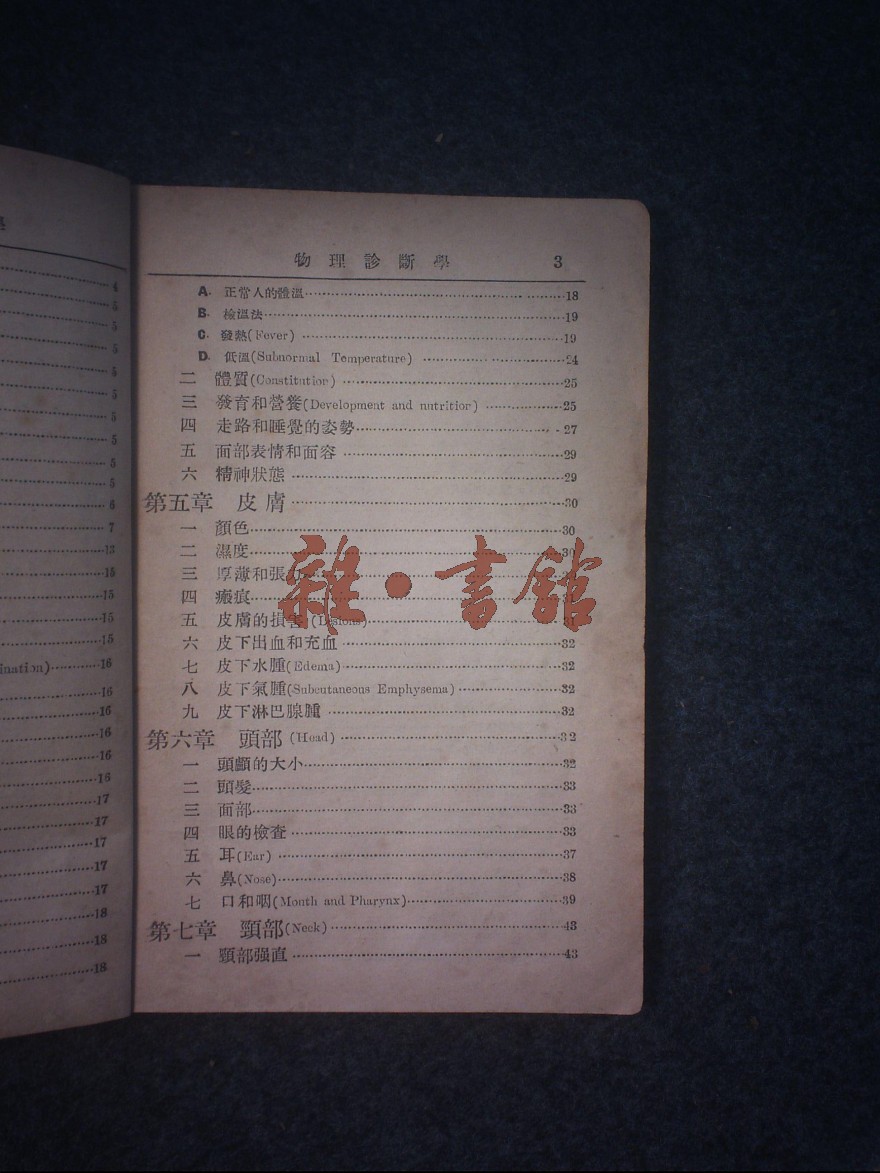 物理診斷學 3
A. 正常人的體溫 18
B. 檢溫法 19
C. 發熱(Fever) 19
D. 低溫(Subnormal Temperature) 24
二 體質(Constitutior) 25
三 發育和營養(Development and nutritior) 25
四 走路和睡覺的姿勢 27
五 面部表情和面容 29
六 精神狀態 29
第五章 皮膚 30
一 顏色 30
二 濕度 30
三 厚薄和張
四 瘢痕
五 皮膚的損害(Lesions) 31
六 皮下出血和充血 32
七 皮下水腫(Edema) 32
八 皮下氣腫(Subcutaneous Emphysema) 32
九 皮下淋巴腺腫 32
第六章 頭部(Head) 32
一 頭顱的大小 32
二 頭髮 33
三 面部 33
四 眼的檢查 33
五 耳(Ear) 37
六 鼻(Nose) 38
七 口和咽(Mouth and Pharynx) 39
第七章 頸部(Neck) 43
一 頸部强直 43
雜·書館
4
5
5
5
5
5
5
5
5
5
6
7
13
15
15
15
15
ination) 16
16
16
16
16
16
17
17
17
17
17
18
18
18